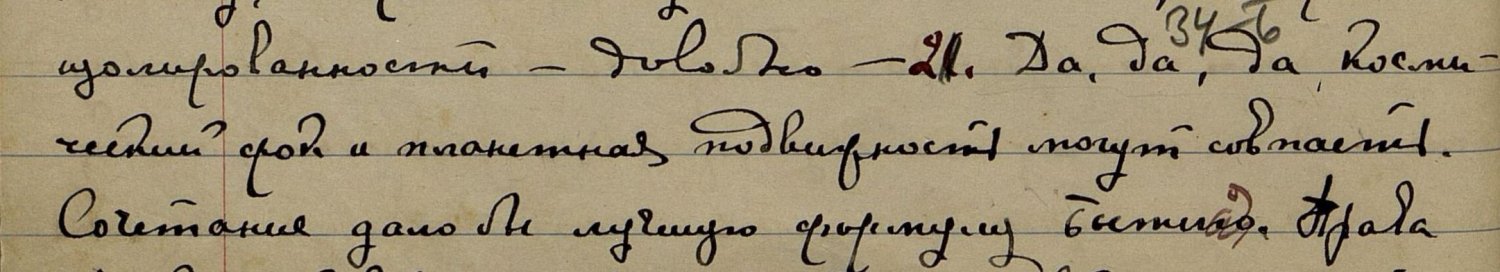 изолированности – довольно – 21. Да, да, да космиче-
ческий срок и планетная подвижность могут совпасть.
Сочетание дало бы лучшую формулу бытия. Права